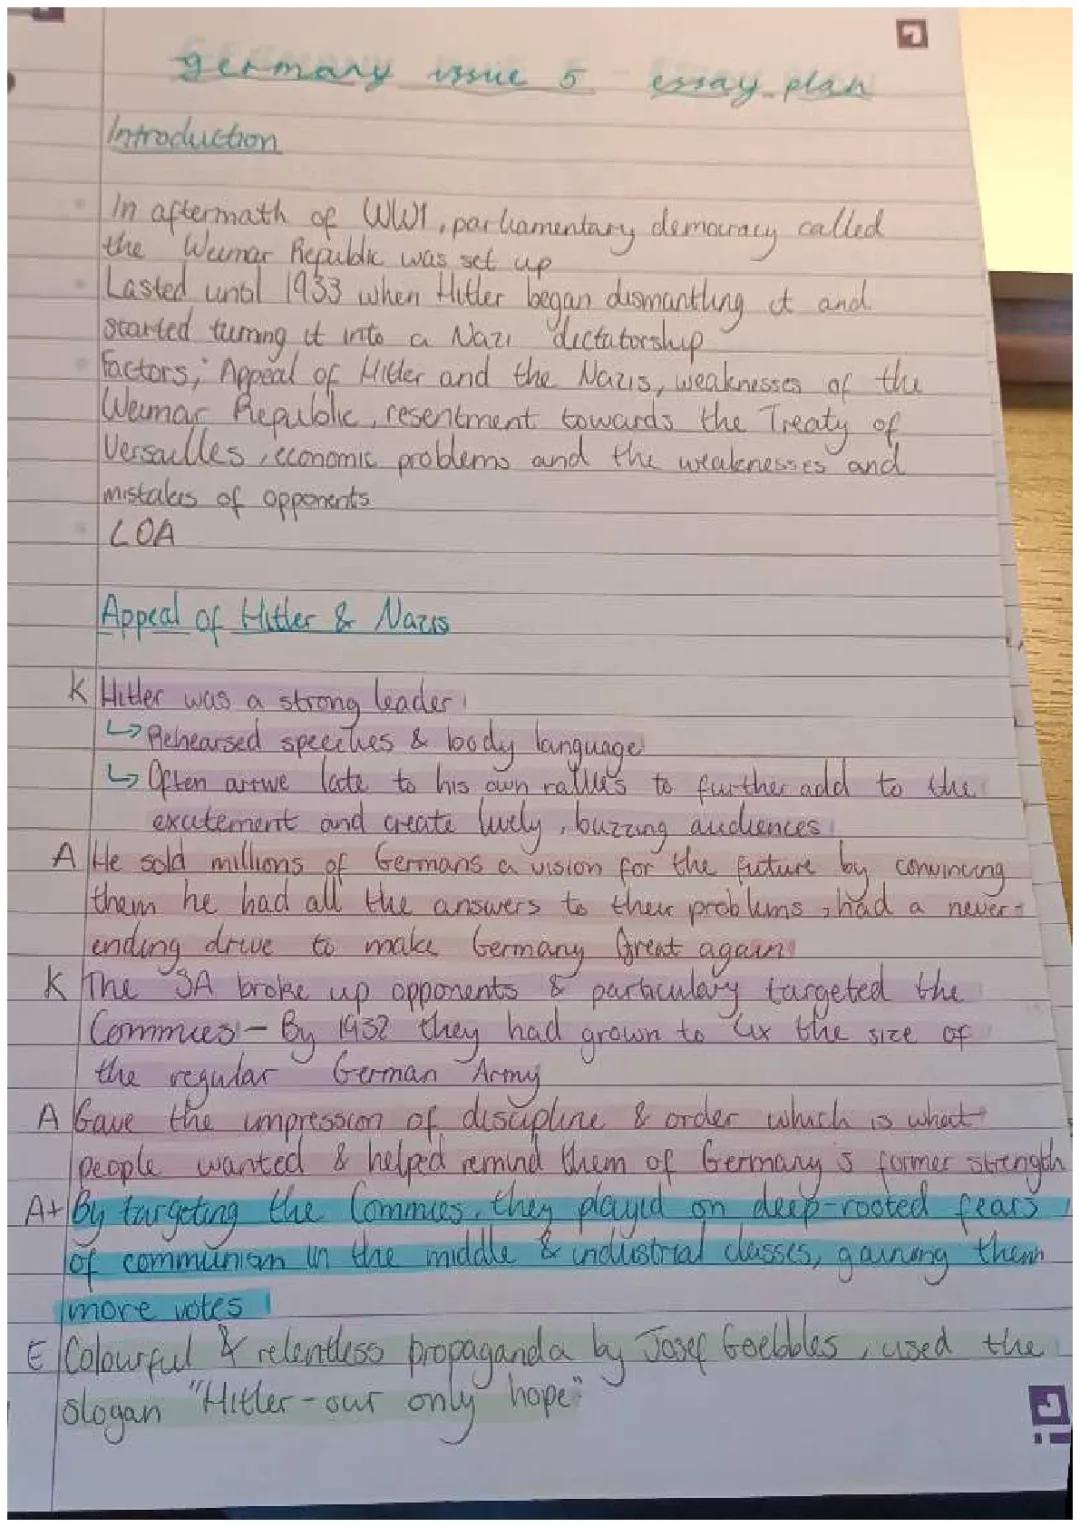 germany issue 5 essay plan
Introduction
In aftermath of WW1, parliamentary democracy called
the Weimar Republic was set up
Lasted until 1933 when Hitler began dismantling it and
started turning it into a Nazi dictatorship
Factors; Appeal of Hitler and the Nazis, weaknesses of the
Weimar Republic, resentment towards the Treaty of
Versailles, economic problems and the weaknesses and
mistakes of opponents
LOA
Appeal of Hitler & Nazis
K Hitler was a strong leader
↳ Rehearsed speeches & body language
↳ Often arrive late to his own rallies to further add to the
excitement and create lively, buzzing audiences
A He sold millions of Germans a vision for the future by convincing
them he had all the answers to their problems, had a never-
ending drive to make Germany Great again
K The SA broke up opponents & particulary targeted the
Commies - By 1932 they had grown to 4x the size of
the regular German Army
A Gave the impression of discipline & order which is what
people wanted & helped remind them of Germany's former strength
A+ By targeting the Commies, they played on deep-rooted fears
of communism in the middle & industrial classes, gaining them
more votes
E Colourful & relentless propaganda by Josef Goebbles, used the
slogan "Hitler - our only hope"